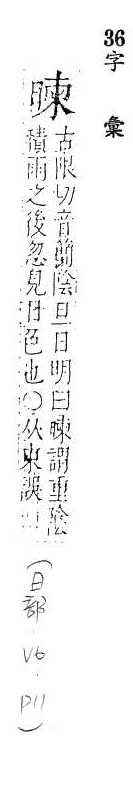 36
字彙
暕
古限切音簡陰旦日明曰暕謂重陰
積雨之後忽見日色也〇从東誤
(日部 V6 P11)